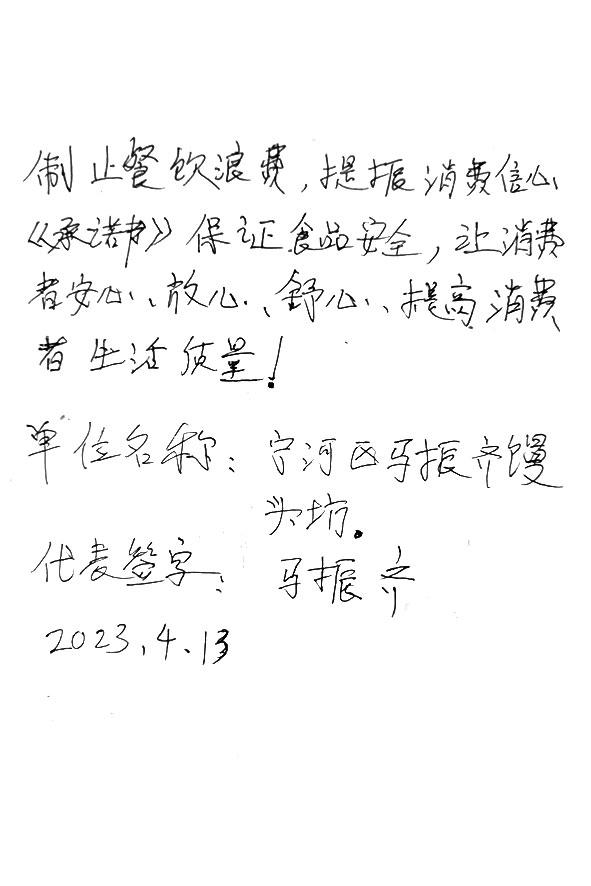 制止餐饮浪费，提振消费信心
《承诺书》保证食品安全，让消费
者安心、放心、舒心、提高消费
者生活质量！
单位名称：宁河区马振齐馒
头坊。
代表签字：马振齐
2023.4.13